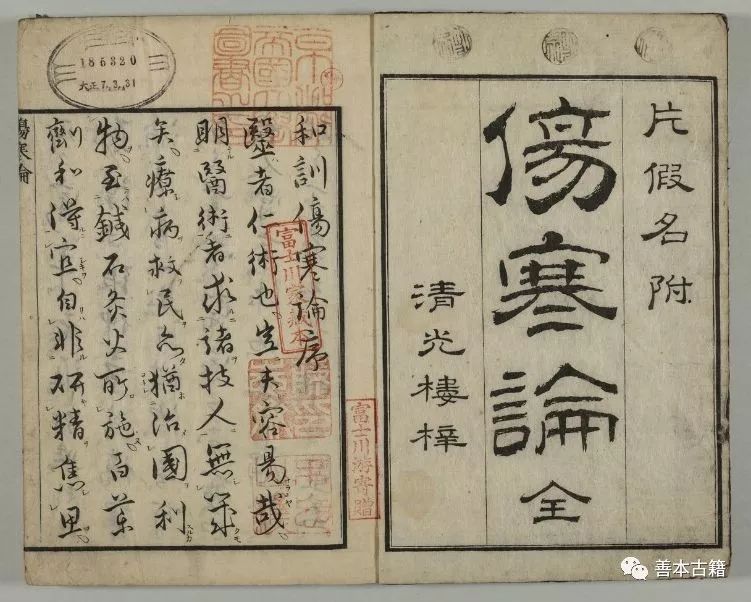 片假名附
傷寒論全
清光樓梓
和訓傷寒論序
毉者仁術也豈夫容易哉
明醫術者求諸技人無
矣療病救民亦猶治國利
物至鍼石灸火所施百藥
劑和得宜自非研精焦思
傷寒論
186320
大正7.3.31
富士川家藏本
富士川游寄贈
善本古籍